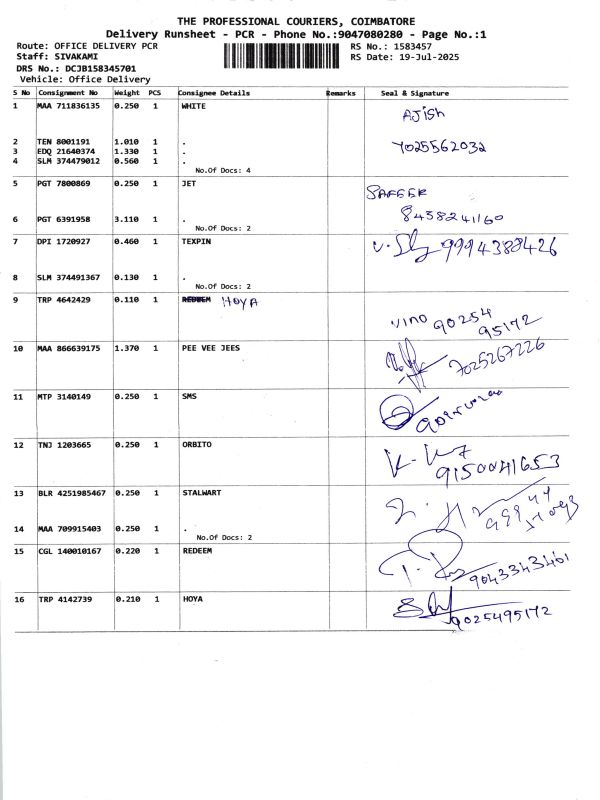 THE PROFESSIONAL COURIERS, COIMBATORE
Delivery Runsheet - PCR - Phone No.:9047080280 - Page No.:1
Route: OFFICE DELIVERY PCR RS No.: 1583457
Staff: SIVAKAMI RS Date: 19-Jul-2025
DRS No.: DCJB158345701
Vehicle: Office Delivery
S No Consignment No Weight PCS Consignee Details Remarks Seal & Signature
1 MAA 711836135 0.250 1 WHITE
AJISH
2 TEN 8001191 1.010 1 . 7025562032
3 EDQ 21640374 1.330 1 .
4 SLM 374479012 0.560 1 .
No.Of Docs: 4
5 PGT 7800869 0.250 1 JET
SAFEER
8438241160
6 PGT 6391958 3.110 1 .
No.Of Docs: 2
7 DPI 1720927 0.460 1 TEXPIN 9994388426
8 SLM 374491367 0.130 1 .
No.Of Docs: 2
9 TRP 4642429 0.110 1 REDEEM HOYA
VINO 90254
95172
10 MAA 866639175 1.370 1 PEE VEE JEES 7025267226
11 MTP 3140149 0.250 1 SMS
12 TNJ 1203665 0.250 1 ORBITO
9150041653
13 BLR 4251985467 0.250 1 STALWART
14 MAA 709915403 0.250 1 .
No.Of Docs: 2
15 CGL 140010167 0.220 1 REDEEM
9043343461
16 TRP 4142739 0.210 1 HOYA
9025495172